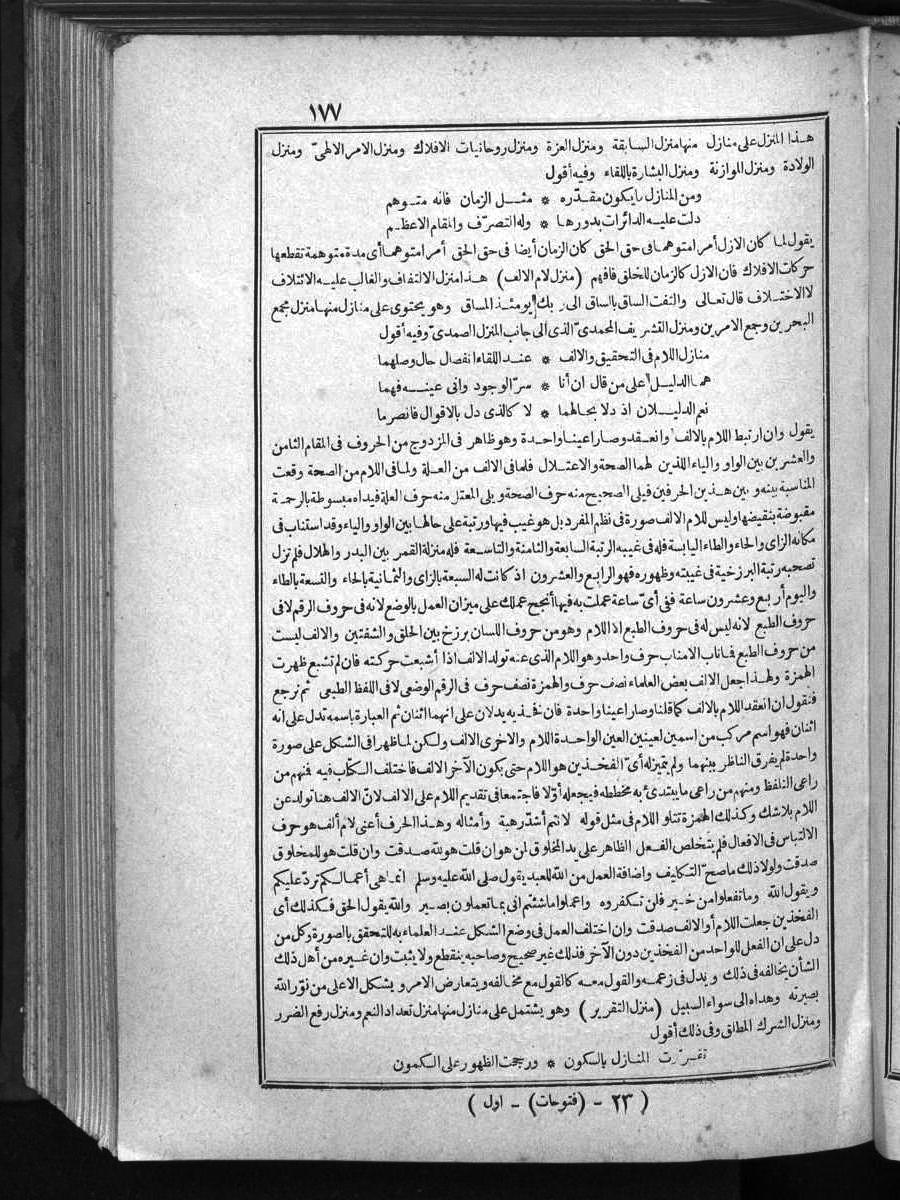 ١٧٧
هذا المنزل على منازل منها منزل السابقة ومنزل العزة ومنزل روحانيات الافلاك ومنزل الامر الالهىّ ومنزل
الولادة ومنزل الموازنة ومنزل البشارة باللقاء وفيه أقول
ومن المنازل ما يكون مقدّره * مثل الزمان فانه متوهم
دلت عليه الدائرات بدورها * وله التصرّف والمقام الاعظم
يقول لما كان الازل أمرا متوهما فى حق الحق كان الزمان أيضا فى حق الحق أمرا متوهما أى مدة متوهمة تقطعها
حركات الافلاك فان الازل كالزمان للخلق فافهم (منزل لام الالف) هذا منزل الالتفاف والغالب عليه الائتلاف
لا الاختلاف قال تعالى والتفت الساق بالساق الى ربك يومئذ المساق وهو يحتوى على منازل منها منزل مجمع
البحرين وجمع الامرين ومنزل التشريف المحمدىّ الذى الى جانب المنزل الصمدىّ وفيه أقول
منازل اللام فى التحقيق والالف * عند اللقاء انفصال حال وصلهما
هما الدليل على من قال ان أنا * سرّ الوجود وانى عينه فهما
نعم الدليلان اذ دلا بحالهما * لا كالذى دل بالاقوال فانصرما
يقول وان ارتبط اللام بالالف وانعقد وصارا عينا واحدة وهو ظاهر فى المزدوج من الحروف فى المقام الثامن
والعشرين بين الواو والياء اللذين لهما الصحة والاعتلال فلما فى الالف من العلة ولما فى اللام من الصحة وقعت
المناسبة بينه وبين هذين الحرفين فيلى الصحيح منه حرف الصحة ويلى المعتل منه حرف العلة فيداه مبسوطة بالرحمة
مقبوضة بنقيضها وليس للام الالف صورة فى نظم المفرد بل هو غيب فيها ورتبة على حالها بين الواو والياء وقد استناب فى
مكانه الزاى والحاء والطاء اليابسة فله فى غيبه الرتبة السابعة والثامنة والتاسعة فله منزلة القمر بين البدر والهلال فلم تزل
تصحبه رتبة البرزخية فى غيبته وظهوره فهو الرابع والعشرون اذ كانت له السبعة بالزاى والثمانية بالحاء والتسعة بالطاء
واليوم أربع وعشرون ساعة ففى أىّ ساعة عملت به فيها أنجح عملك على ميزان العمل بالوضع لانه فى حروف الرقم لا فى
حروف الطبع لانه ليس له فى حروف الطبع الا اللام وهو من حروف اللسان برزخ بين الحلق والشفتين والالف ليست
من حروف الطبع فما ناب الا مناب حرف واحد وهو اللام الذى عنه تولد الالف اذا أشبعت حركته فان لم تشبع ظهرت
الهمزة ولهذا جعل الالف بعض العلماء نصف حرف والهمزة نصف حرف فى الرقم الوضعى لا فى اللفظ الطبيعى ثم نرجع
فنقول ان انعقد اللام بالالف كما قلنا وصارا عينا واحدة فان فخذيه يدلان على انهما اثنان ثم العبارة باسمه تدل على انه
اثنان فهو اسم مركب من اسمين لعينين العين الواحدة اللام والاخرى الالف ولكن لما ظهرا فى الشكل على صورة
واحدة لم يفرق الناظر بينهما ولم يتميز له أىّ الفخذين هو اللام حتى يكون الآخر الالف فاختلف الكتاب فيه فمنهم من
راعى التلفظ ومنهم من راعى ما يبتدئ به مخططه فيجعله أوّلا فاجتمعا فى تقديم اللام على الالف لانّ الالف هنا تولد عن
اللام بلا شك وكذلك الهمزة تتلو اللام فى مثل قوله لانتم أشدّ رهبة وأمثاله وهذا الحرف أعنى لام ألف هو حرف
الالتباس فى الافعال فلم يتخلص الفعل الظاهر على يد المخلوق لمن هو ان قلت هو لله صدقت وان قلت هو للمخلوق
صدقت ولولا ذلك ما صحّ التكليف واضافة العمل من الله للعبد يقول صلى الله عليه وسلم انما هى أعمالكم تردّ عليكم
ويقول الله وما تفعلوا من خير فلن تكفروه واعملوا ما شئتم انى بما تعملون بصير والله يقول الحق فكذلك أى
الفخذين جعلت اللام أو الالف صدقت وان اختلف العمل فى وضع الشكل عند العلماء به للتحقق بالصورة وكل من
دل على ان الفعل للواحد من الفخذين دون الآخر فذلك غير صحيح وصاحبه ينقطع ولا يثبت وان غيره من أهل ذلك
الشأن يخالفه فى ذلك ويدل فى زعمه والقول معه كالقول مع مخالفه ويتعارض الامر ويشكل الا على من نوّر الله
بصيرته وهداه الى سواء السبيل (منزل التقرير) وهو يشتمل على منازل منها منزل تعداد النعم ومنزل رفع الضرر
ومنزل الشرك المطلق وفى ذلك أقول
تقررت المنازل بالسكون * ورجحت الظهور على الكمون
(٢٣ - (فتوحات) - اول)